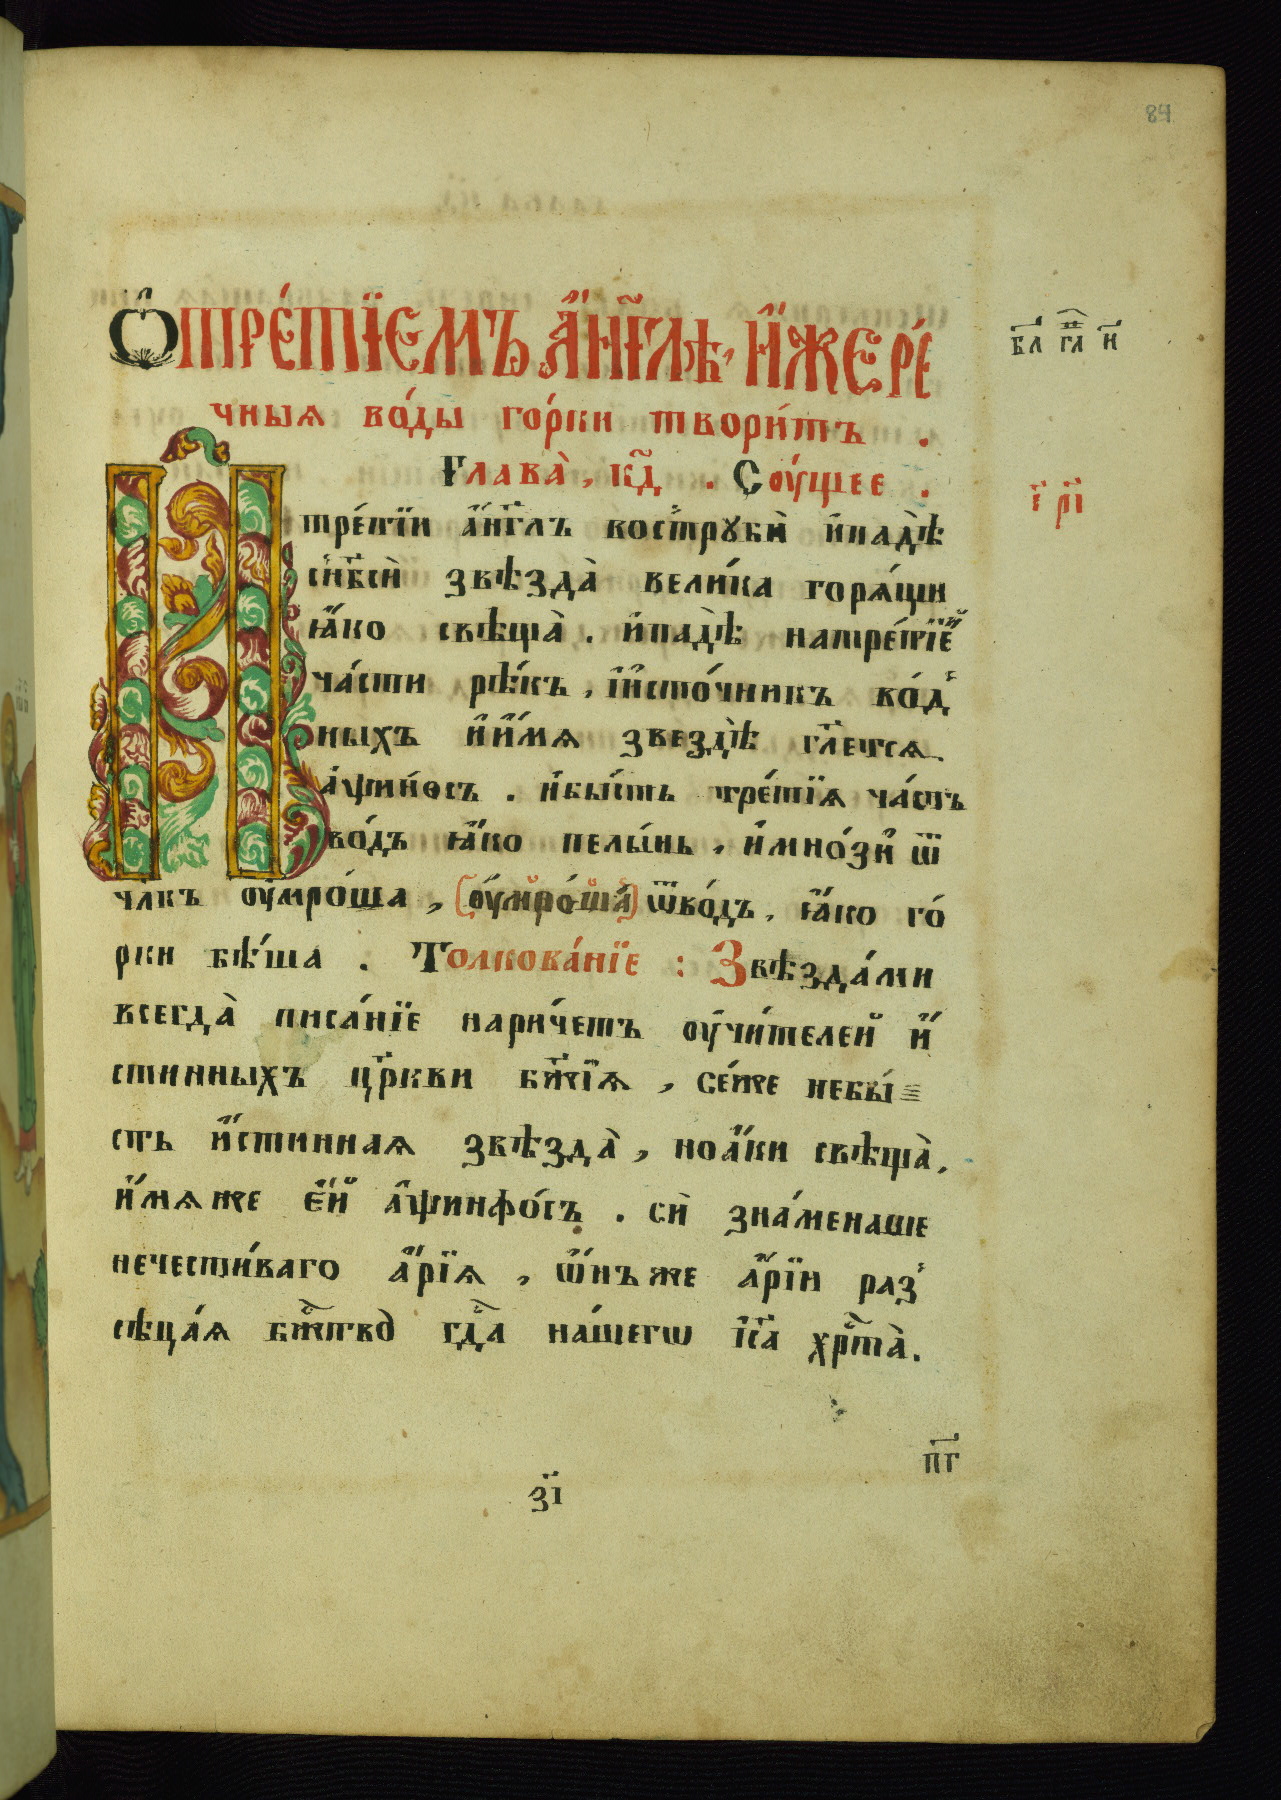 84
Ѽ трéтїемъ а҆́нг҃лѣ, и҆́же рѣ́
чныѧ во́ды го́рки твори́тъ .
Глава̀, к҃д . Соу́щее .
бл҃ гл҃ и҃
І҃ р҃і
И трéтїи а҆́нг҃лъ вострꙋбѝ и҆ падѐ
с н҃бсѝ звѣзда̀ вели́ка горѧ́щи
ꙗ҆́ко свѣща̀ . и҆ падѐ на трéтїей
ча́сти рѣ́къ , і҆ и҆сто́чникъ во́д
ныхъ и҆ и҆́мѧ звездѣ̀ гл҃етсѧ
а҆ѱи́нѳосъ . и҆ бы́сть трéтїѧ ча́сть
во́дъ ꙗ҆́ко пелы́нь , и҆ мно́зи ѿ
чл҃къ оу҆мро́ша , (оу҆мро́ша) ѿ во́дъ , ꙗ҆́ко го́
рки бѣ́ша . Толкова́нїе : Звѣзда́ми
всегда̀ писа́нїе нари́четъ оу҆чи́телей и҆́
стинныхъ цр҃кви бж҃їѧ , сéже не бы́
сть и҆́стиннаѧ звѣзда̀ , но а҆́ки свѣща̀,
и҆́мѧже є҆́й а҆ѱинфо́съ . сѝ зна́менаше
нечести́ваго а҆́рїѧ , ѻ҆́нъже а҆́рїи раз
сѣца́ѧ бж҃тво гд҃а на́шегѡ і҆с҃а хр҃та̀.
п҃г
з҃і